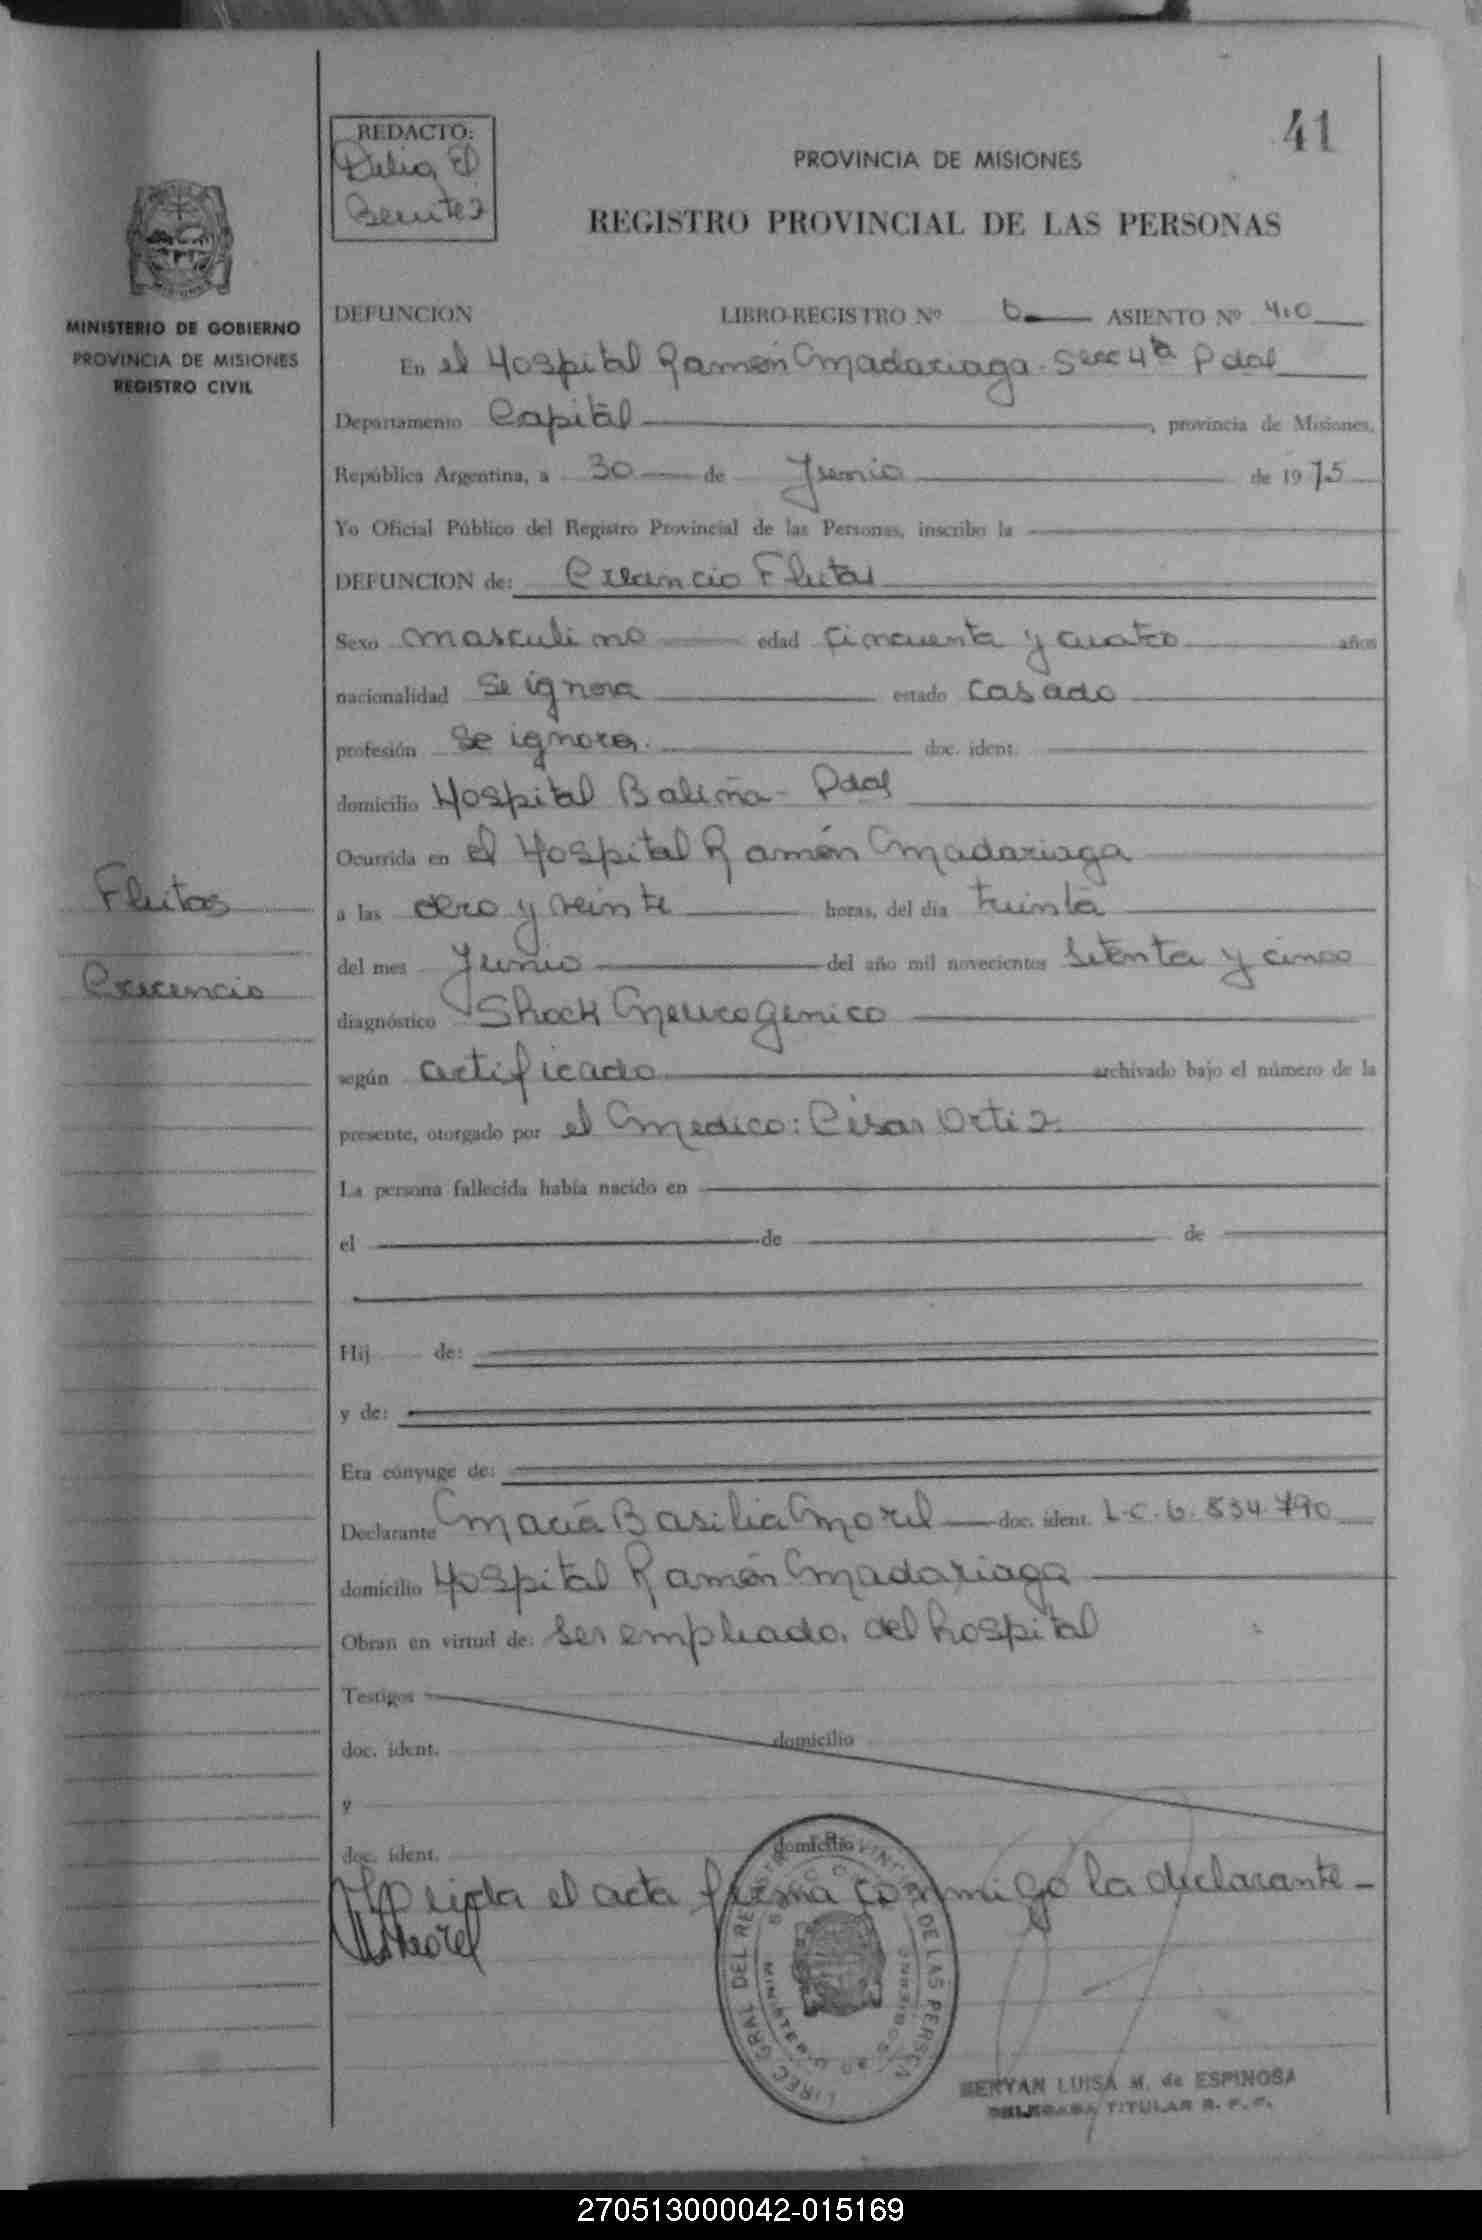 41
REDACTO:
Delia E
Benitez
PROVINCIA DE MISIONES
REGISTRO PROVINCIAL DE LAS PERSONAS
MINISTERIO DE GOBIERNO
PROVINCIA DE MISIONES
REGISTRO CIVIL
DEFUNCION LIBRO-REGISTRO Nº ASIENTO Nº 40
En el Hospital Ramón Madariaga. Secc 4ª Pdas
Departamento Capital, provincia de Misiones,
República Argentina, a 30 de Junio de 1975
Yo Oficial Público del Registro Provincial de las Personas, inscribo la
DEFUNCION de: Fleitas
Sexo masculino edad cincuenta y cuatro años
nacionalidad Se ignora estado casado
profesión Se ignora. doc. ident.
domicilio Hospital Baliña - Pdas
Ocurrida en el Hospital Ramón Madariaga
a las cero y veinte horas, del día treinta
del mes Junio del año mil novecientos setenta y cinco
diagnóstico Shock Neurogenico
según certificado archivado bajo el número de la
presente, otorgado por el Medico: César Ortiz
La persona fallecida había nacido en
el de de
Hij de:
y de:
Era cónyuge de:
Declarante María Basilia Morel doc. ident. L.C. 6.834.790
domicilio Hospital Ramón Madariaga
Obran en virtud de: ser empleada. del hospital
Testigos
doc. ident. domicilio
y
doc. ident. domicilio
leida el acta firma conmigo la declarante -
Morel
Fleitas
Crecencio
DIREC. GRAL. DEL REGISTRO PROVINCIAL DE LAS PERSONAS
MENYAN LUISA M. de ESPINOSA
DELEGADA TITULAR R. P. P.
270513000042-015169